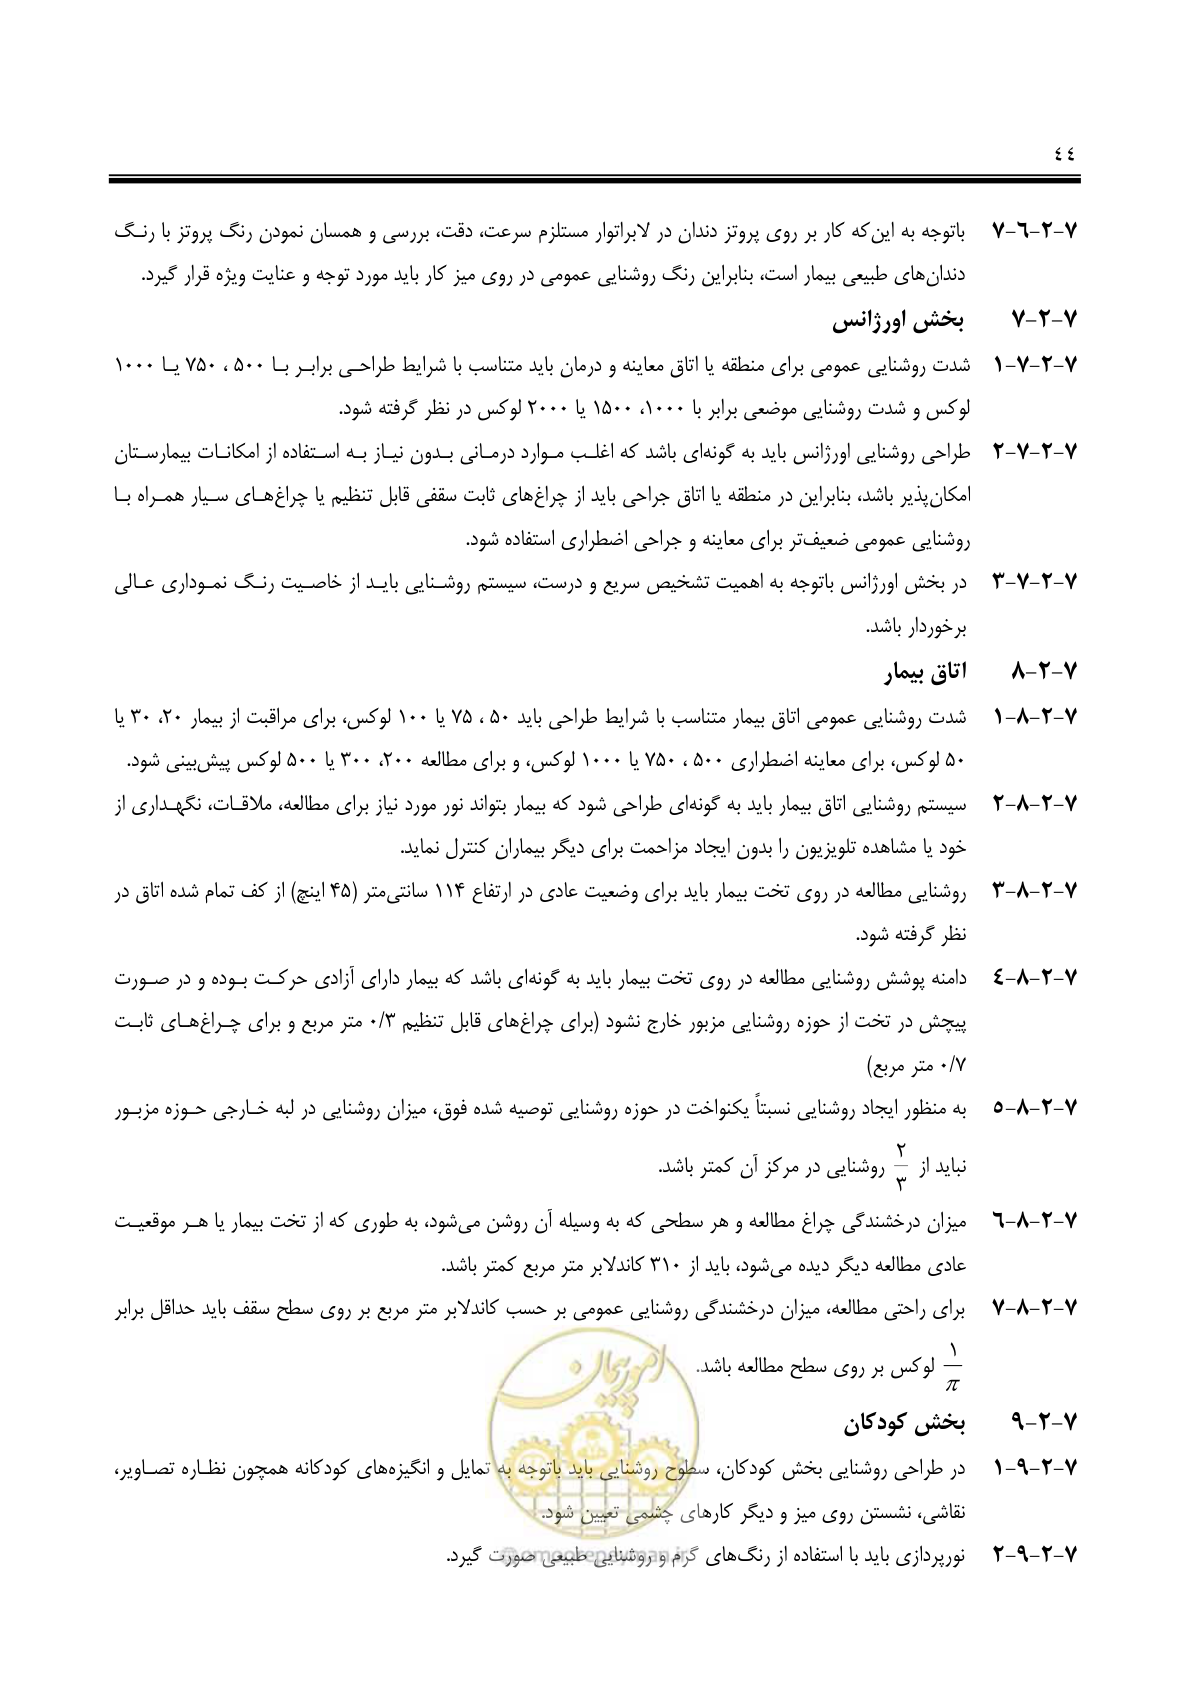 ٤٤
۷-۲-٦-۷ باتوجه به این‌که کار بر روی پروتز دندان در لابراتوار مستلزم سرعت، دقت، بررسی و همسان نمودن رنگ پروتز با رنـگ
دندان‌های طبیعی بیمار است، بنابراین رنگ روشنایی عمومی در روی میز کار باید مورد توجه و عنایت ویژه قرار گیرد.
۷-۲-۷ بخش اورژانس
۷-۲-۷-۱ شدت روشنایی عمومی برای منطقه یا اتاق معاینه و درمان باید متناسب با شرایط طراحـی برابـر بـا ۵۰۰ ، ۷۵۰ یـا ۱۰۰۰
لوکس و شدت روشنایی موضعی برابر با ۱۰۰۰، ۱۵۰۰ یا ۲۰۰۰ لوکس در نظر گرفته شود.
۷-۲-۷-۲ طراحی روشنایی اورژانس باید به گونه‌ای باشد که اغلـب مـوارد درمـانی بـدون نیـاز بـه اسـتفاده از امکانـات بیمارسـتان
امکان‌پذیر باشد، بنابراین در منطقه یا اتاق جراحی باید از چراغ‌های ثابت سقفی قابل تنظیم یا چراغ‌هـای سـیار همـراه بـا
روشنایی عمومی ضعیف‌تر برای معاینه و جراحی اضطراری استفاده شود.
۷-۲-۷-۳ در بخش اورژانس باتوجه به اهمیت تشخیص سریع و درست، سیستم روشـنایی بایـد از خاصـیت رنـگ نمـوداری عـالی
برخوردار باشد.
۷-۲-۸ اتاق بیمار
۷-۲-۸-۱ شدت روشنایی عمومی اتاق بیمار متناسب با شرایط طراحی باید ۵۰ ، ۷۵ یا ۱۰۰ لوکس، برای مراقبت از بیمار ۲۰، ۳۰ یا
۵۰ لوکس، برای معاینه اضطراری ۵۰۰ ، ۷۵۰ یا ۱۰۰۰ لوکس، و برای مطالعه ۲۰۰، ۳۰۰ یا ۵۰۰ لوکس پیش‌بینی شود.
۷-۲-۸-۲ سیستم روشنایی اتاق بیمار باید به گونه‌ای طراحی شود که بیمار بتواند نور مورد نیاز برای مطالعه، ملاقـات، نگهـداری از
خود یا مشاهده تلویزیون را بدون ایجاد مزاحمت برای دیگر بیماران کنترل نماید.
۷-۲-۸-۳ روشنایی مطالعه در روی تخت بیمار باید برای وضعیت عادی در ارتفاع ۱۱۴ سانتی‌متر (۴۵ اینچ) از کف تمام شده اتاق در
نظر گرفته شود.
۷-۲-۸-٤ دامنه پوشش روشنایی مطالعه در روی تخت بیمار باید به گونه‌ای باشد که بیمار دارای آزادی حرکـت بـوده و در صـورت
پیچش در تخت از حوزه روشنایی مزبور خارج نشود (برای چراغ‌های قابل تنظیم ۰/۳ متر مربع و برای چـراغ‌هـای ثابـت
۰/۷ متر مربع)
۷-۲-۸-٥ به منظور ایجاد روشنایی نسبتاً یکنواخت در حوزه روشنایی توصیه شده فوق، میزان روشنایی در لبه خـارجی حـوزه مزبـور
نباید از ۲/۳ روشنایی در مرکز آن کمتر باشد.
۷-۲-۸-٦ میزان درخشندگی چراغ مطالعه و هر سطحی که به وسیله آن روشن می‌شود، به طوری که از تخت بیمار یا هـر موقعیـت
عادی مطالعه دیگر دیده می‌شود، باید از ۳۱۰ کاندلابر متر مربع کمتر باشد.
۷-۲-۸-۷ برای راحتی مطالعه، میزان درخشندگی روشنایی عمومی بر حسب کاندلابر متر مربع بر روی سطح سقف باید حداقل برابر
۱/π لوکس بر روی سطح مطالعه باشد.
۷-۲-۹ بخش کودکان
۷-۲-۹-۱ در طراحی روشنایی بخش کودکان، سطوح روشنایی باید باتوجه به تمایل و انگیزه‌های کودکانه همچون نظـاره تصـاویر،
نقاشی، نشستن روی میز و دیگر کارهای چشمی تعیین شود.
۷-۲-۹-۲ نورپردازی باید با استفاده از رنگ‌های گرم و روشنایی طبیعی صورت گیرد.
امور پیمان
@omoorepeyman.ir